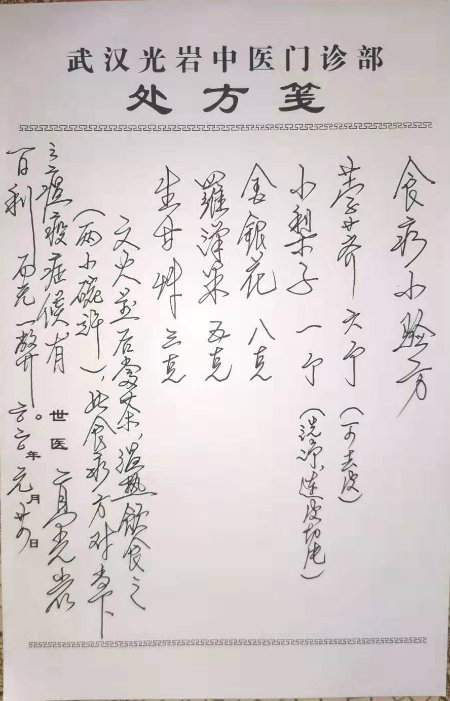 武汉光岩中医门诊部
处方笺
食疗小验方
荸荠 六个 (可去皮)
小梨子 一个 (洗净,连皮切片)
金银花 八克
罗汉果 五克
生甘草 三克
文火煎后当茶,温热饮食之
(两小碗许),此食疗方对当下
之瘟疫症候有
百利而无一弊。
世医
年 元月 日